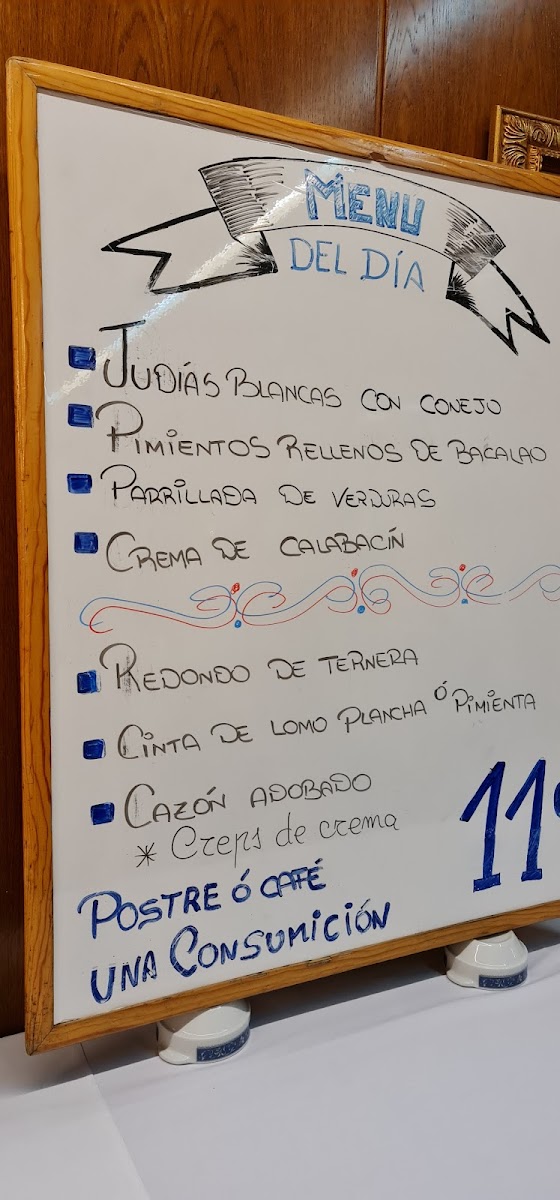 MENU
DEL DÍA
JUDÍAS BLANCAS CON CONEJO
PIMIENTOS RELLENOS DE BACALAO
PARRILLADA DE VERDURAS
CREMA DE CALABACÍN
REDONDO DE TERNERA
CINTA DE LOMO PLANCHA Ó PIMIENTA
CAZÓN ADOBADO
* Creps de crema
11
POSTRE Ó CAFÉ
UNA CONSUMICIÓN